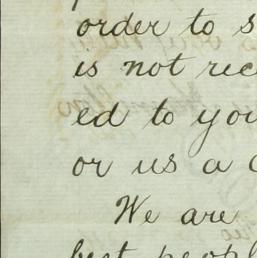 order to s
is not rec
ed to you
or us a
We are
best peopl